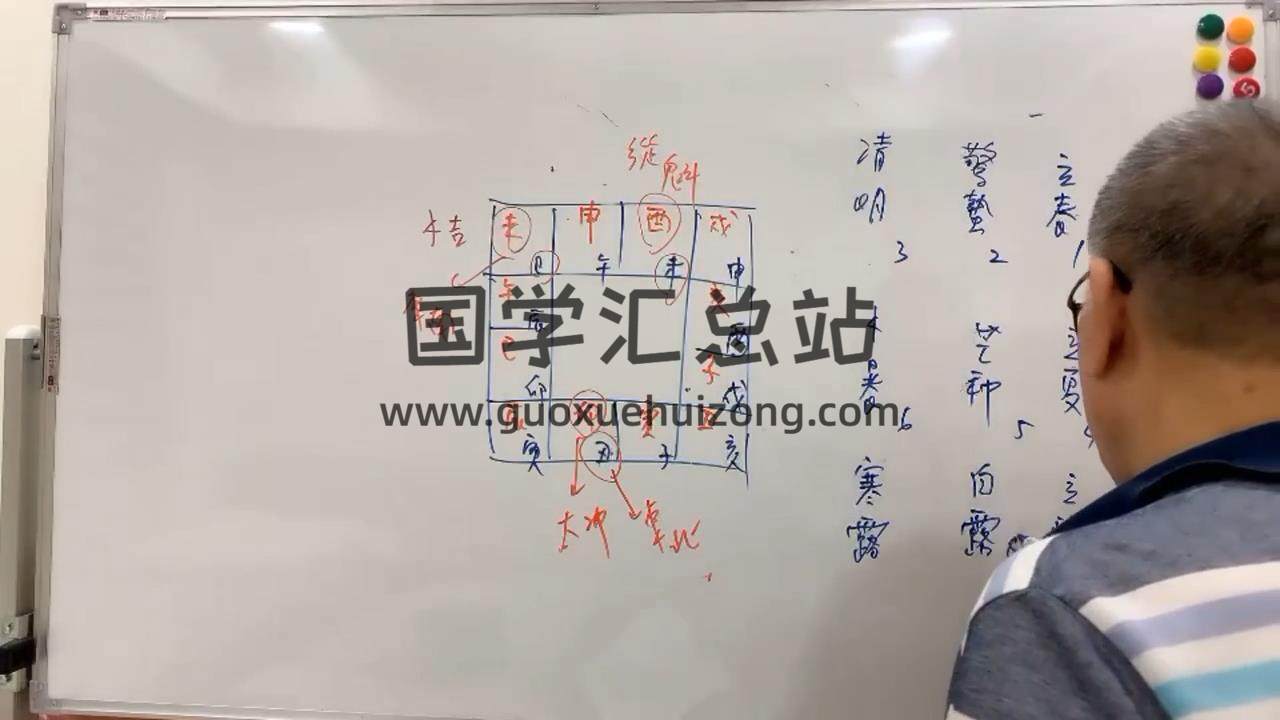 從魁
未 申 酉 戌
巳 午 未 申
午
辰
巳
卯
酉
子
戌
寅 丑 子 亥
太冲
清明 驚蟄 立春
3 2 1
芒种 立夏
6 5 4
寒露 白露 立
国学汇总站
www.guoxuehuizong.com